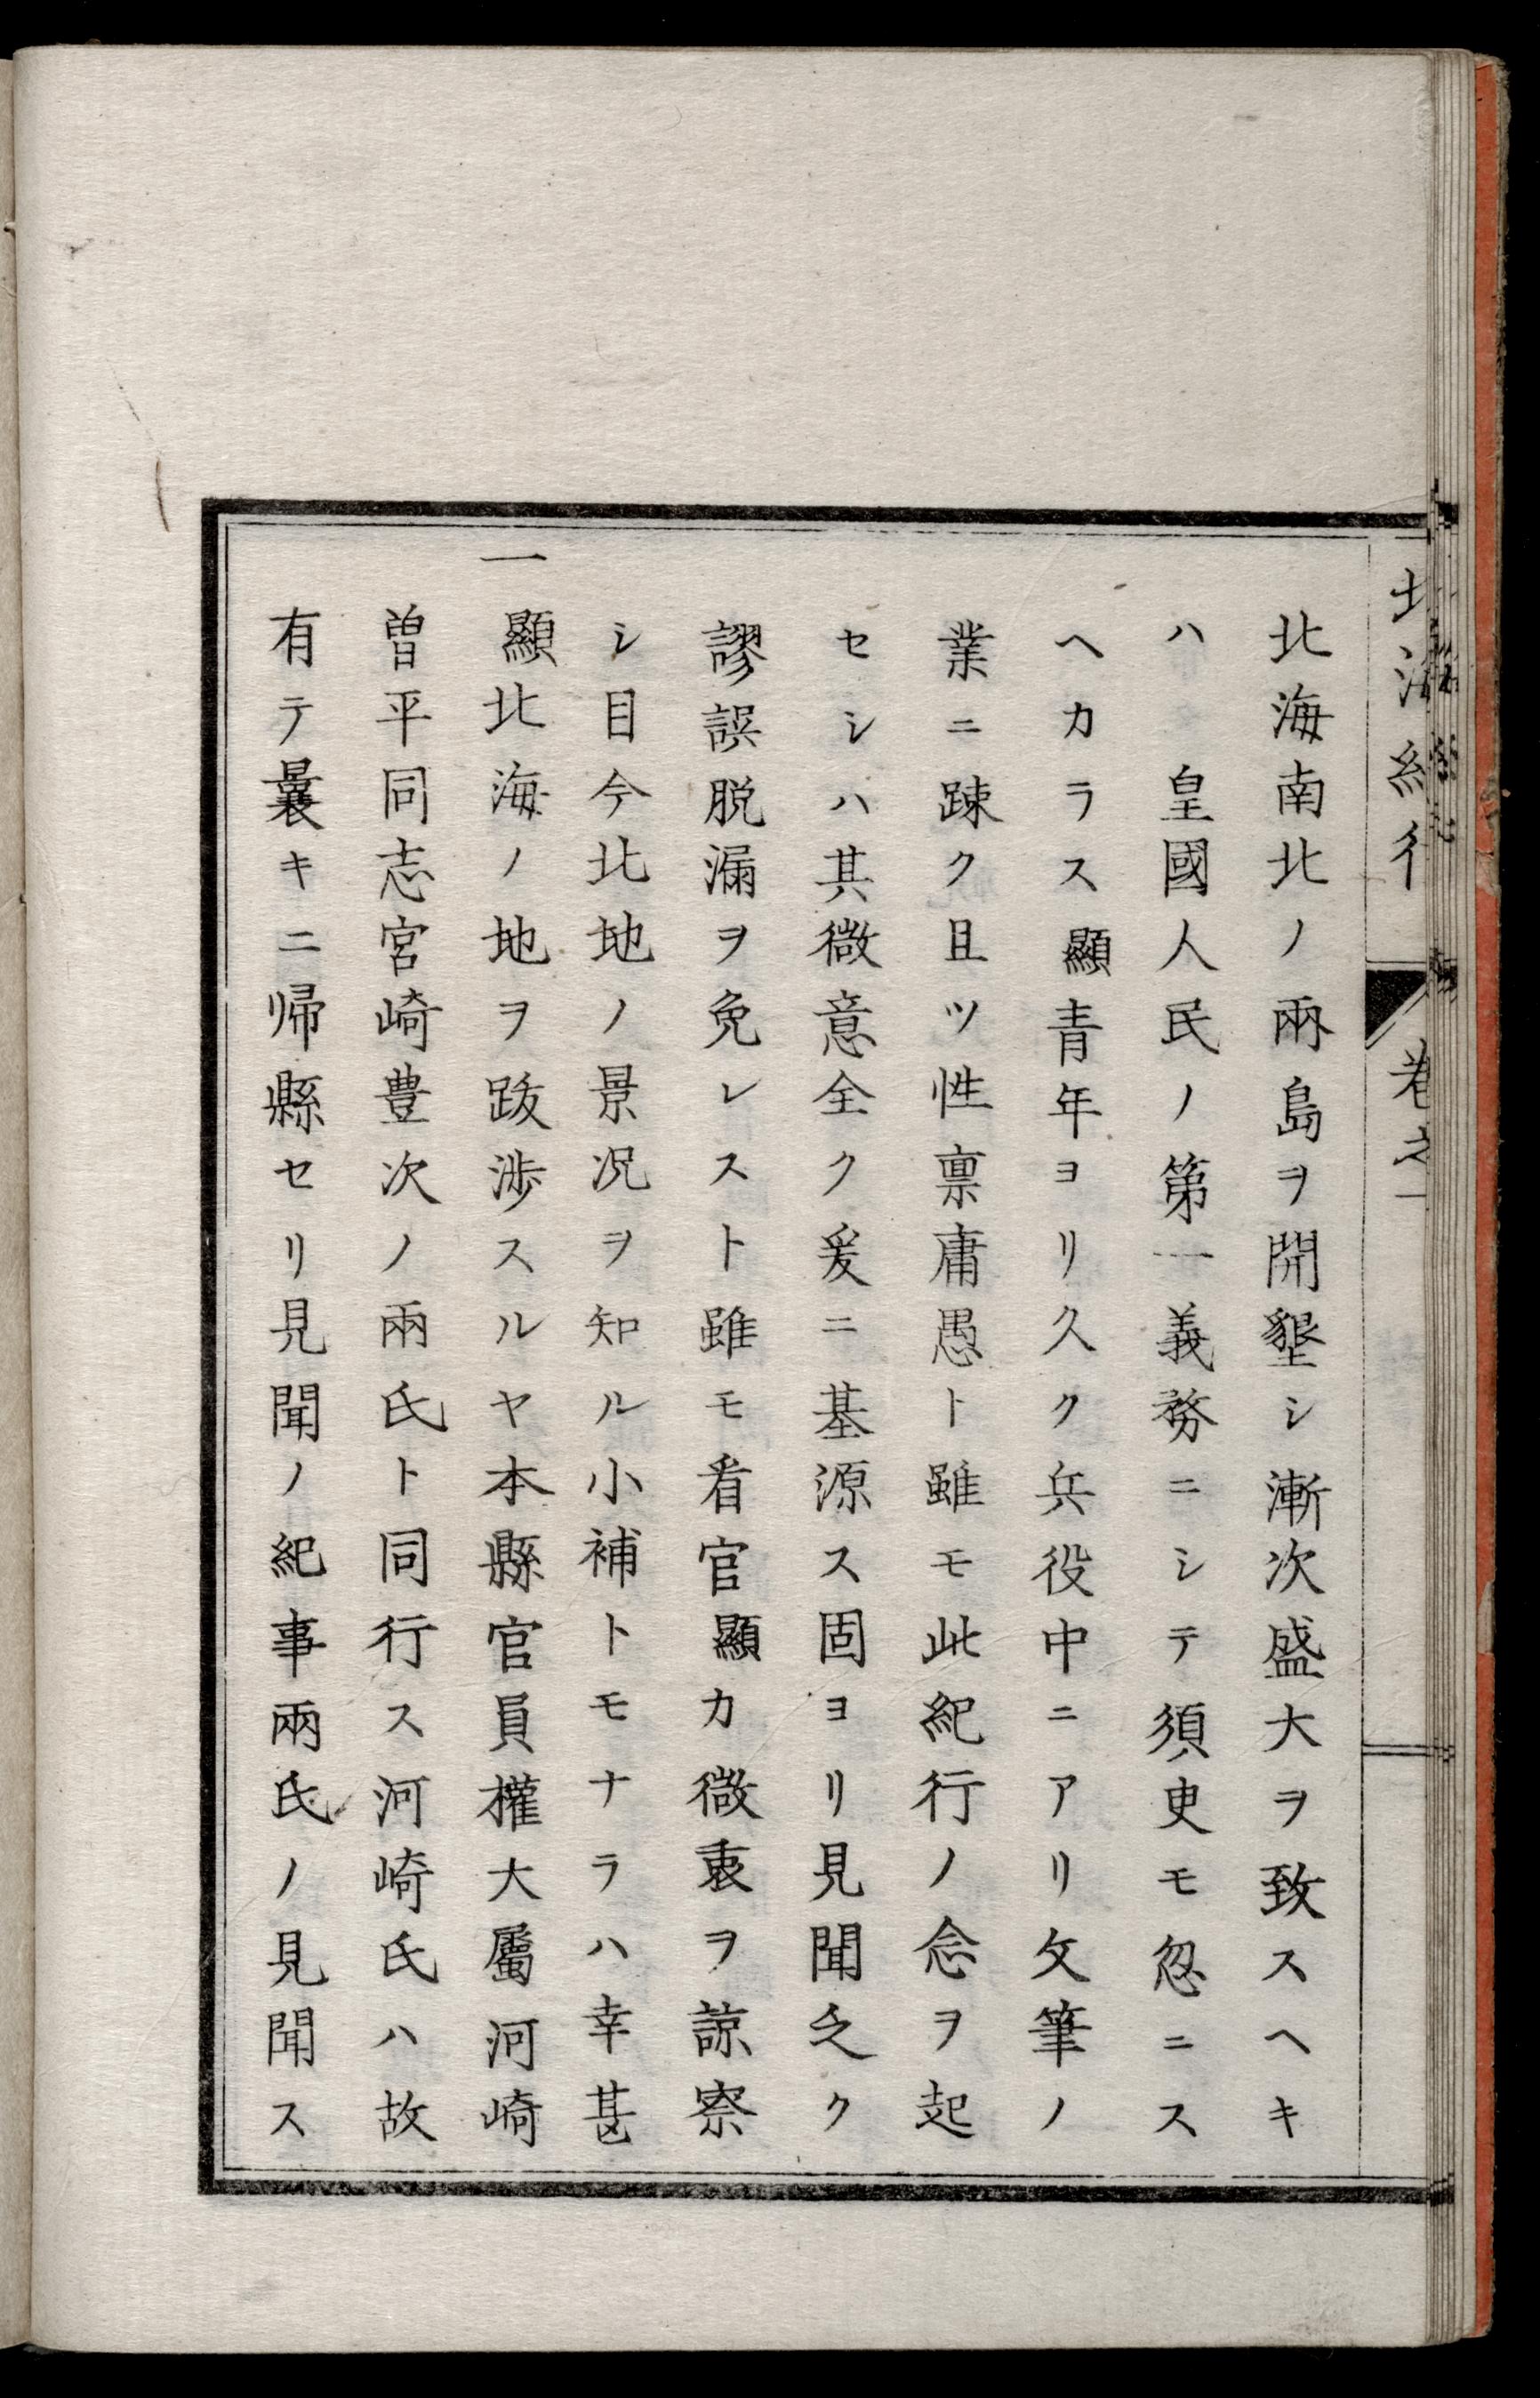 北海紀行 卷之一
北海南北ノ兩島ヲ開墾シ漸次盛大ヲ致スヘキ
ハ 皇國人民ノ第一義務ニシテ須叓モ忽ニス
ヘカラス顯青年ヨリ久ク兵役中ニアリ文筆ノ
業ニ踈ク且ツ性禀庸愚ト雖モ此紀行ノ念ヲ起
セシハ其微意全ク爰ニ基源ス固ヨリ見聞乏ク
謬誤脱漏ヲ免レスト雖モ看官顯カ微衷ヲ諒察
シ目今北地ノ景况ヲ知ル小補トモナラハ幸甚
一顯北海ノ地ヲ跋渉スルヤ本縣官員權大屬河崎
曽平同志宮崎豊次ノ兩氏ト同行ス河崎氏ハ故
有テ曩キニ帰縣セリ見聞ノ紀事兩氏ノ見聞ス